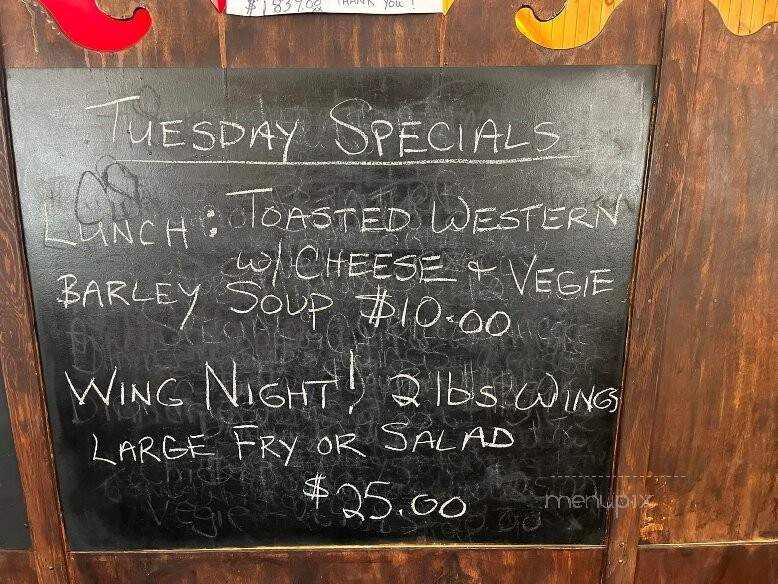 $1839.00 THANK YOU!
TUESDAY SPECIALS
LUNCH: TOASTED WESTERN
W/ CHEESE & VEGIE
BARLEY SOUP $10.00
WING NIGHT! 2 lbs WINGS
LARGE FRY OR SALAD
$25.00
menupix